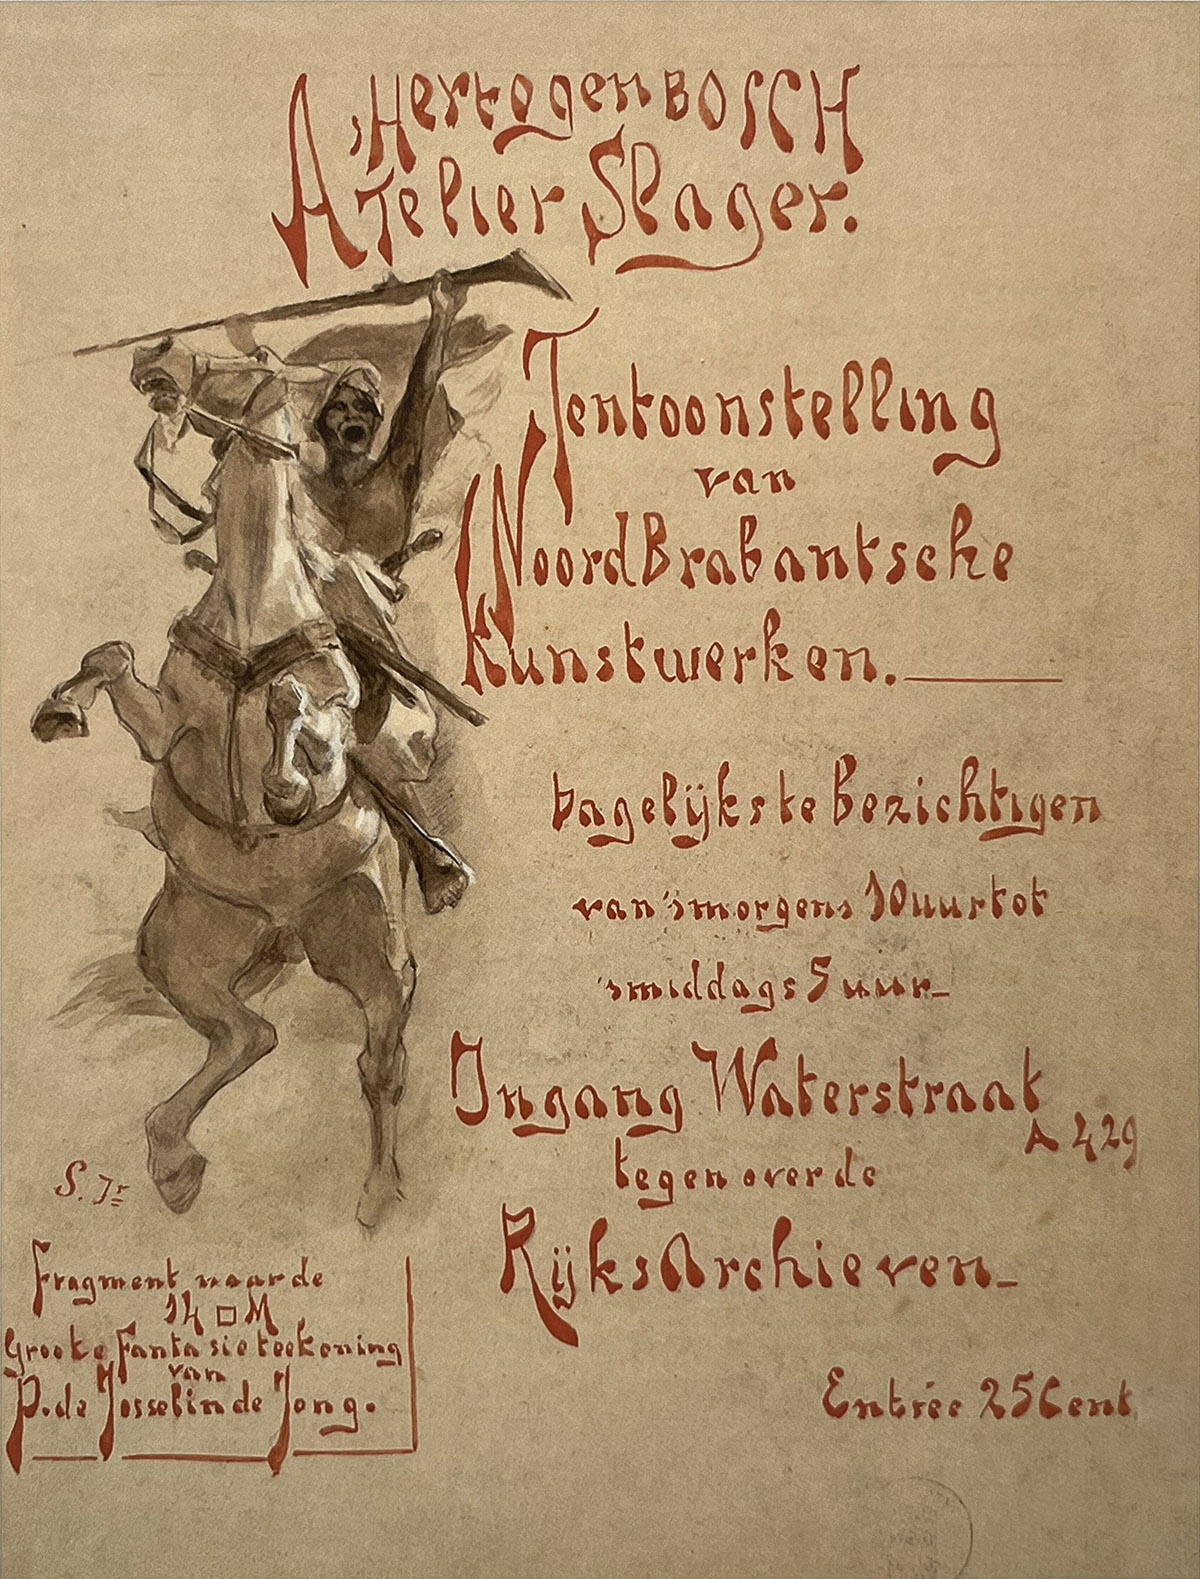 'sHertogenBOSCH
Atelier Slager.
Tentoonstelling
van
NoordBrabantsche
Kunstwerken.
Dagelijks te Bezichtigen
van 'smorgens 10 uur tot
'smiddags 5 uur_
Ingang Waterstraat
A 429
tegenover de
RijksArchieven_
Entrée 25 Cent
S. Jr
Fragment naar de
14 □ M
Groote Fantasieteekening
van
P. de Josselin de Jong.